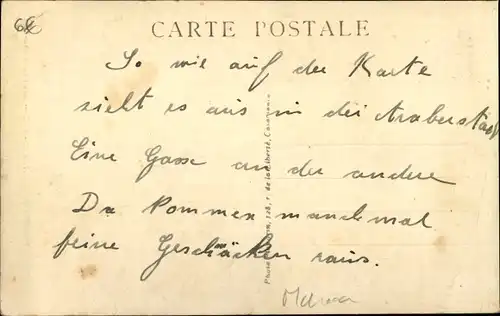 68
CARTE POSTALE
So wie auf der Karte
sieht es aus in der Araberstadt
Eine Gasse an der andere
Da kommen manchmal
feine Geschmäcken raus.
de la Liberté, Casablanca